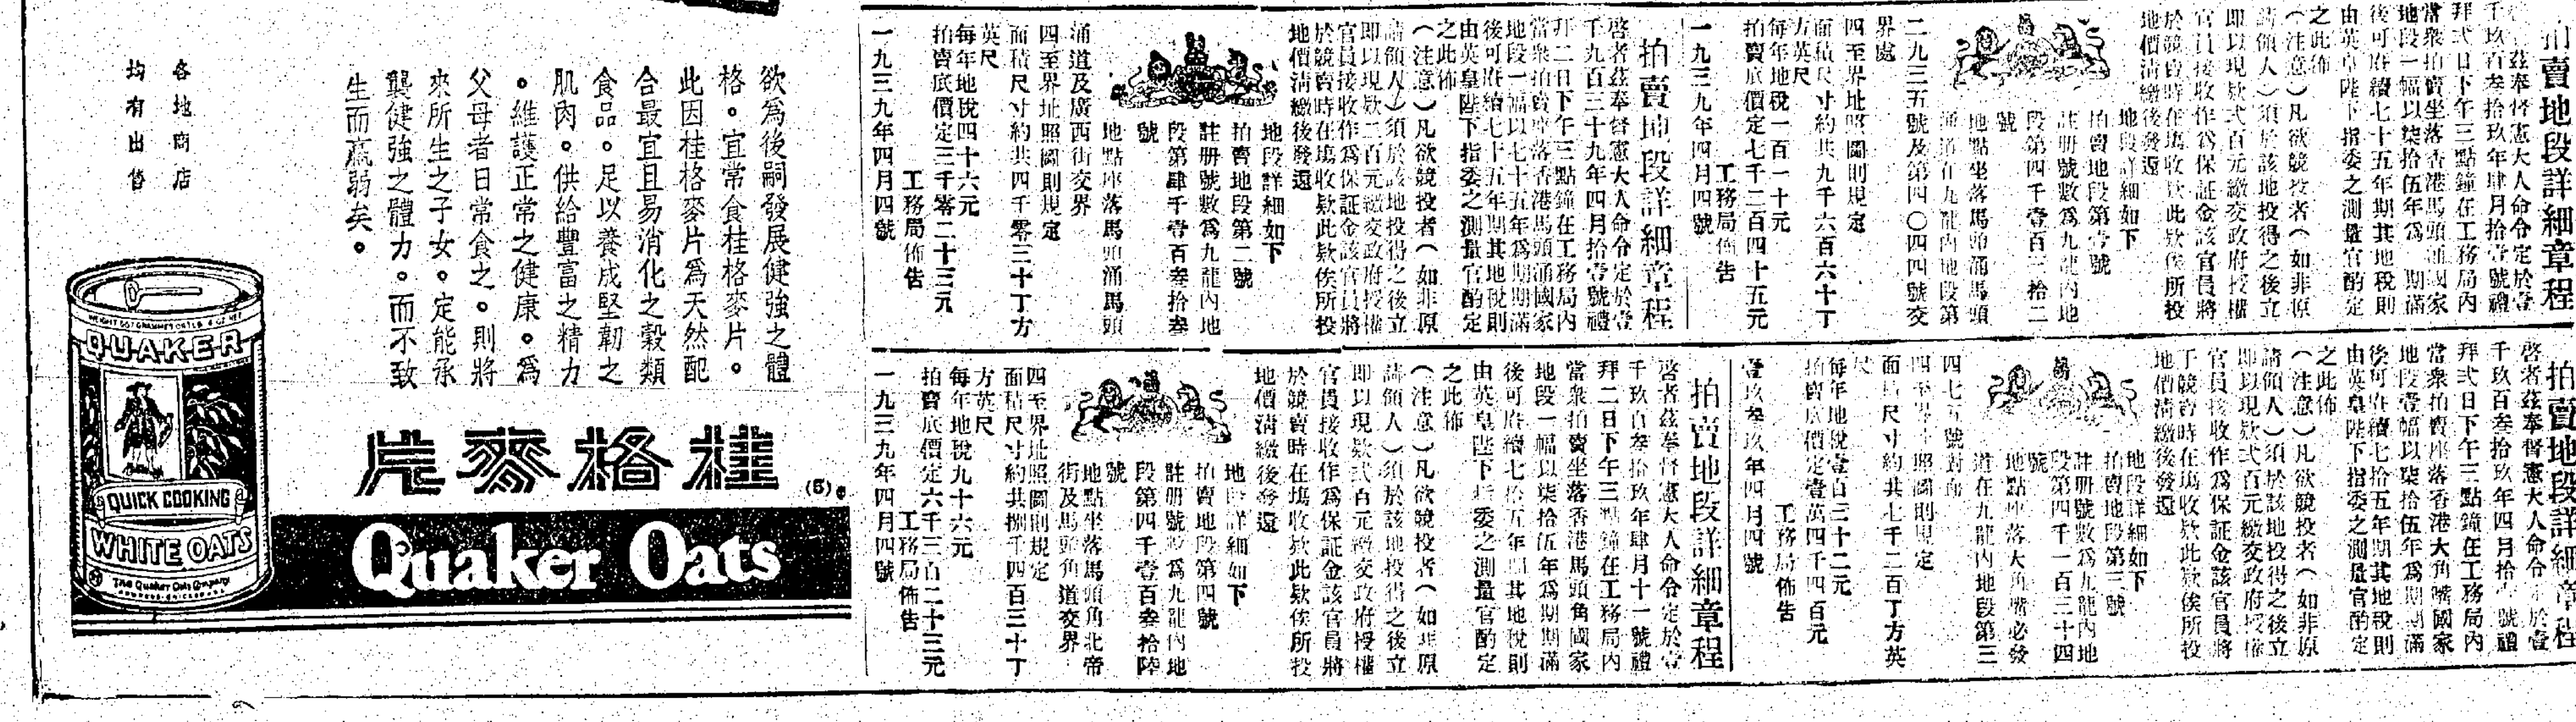 拍賣地段詳細章程
茲奉督憲大人命令定於壹
千玖百叁拾玖年肆月拾壹號禮
拜弍日下午三點鐘在工務局內
當衆拍賣坐落香港馬頭涌國家
地段一幅以柒拾伍年為期期滿
後可再續七十五年期其地稅則
由英皇陛下指委之測量官酌定
之此佈
（注意）凡欲競投者（如非原
請領人）須於該地投得之後立
即以現欵弍百元繳交政府授權
官員接收作為保証金該官員將
於競賣時在塲收欵此欵俟所投
地價清繳後發還
地段詳細如下
拍賣地段第壹號
註册號數為九龍內地
段第四千壹百三拾二
號
地點坐落馬頭涌馬頭
涌道在九龍內地段第
二九三五號及第四〇四四號交
界處
四至界址照圖則規定
面積尺寸約共九千六百六十丁
方英尺
每年地稅一百一十元
拍賣底價定七千二百四十五元
工務局佈告
一九三九年四月四號
拍賣地段詳細章程
啓者茲奉督憲大人命令定於壹
千九百三十九年四月拾壹號禮
拜二日下午三點鐘在工務局內
當衆拍賣座落香港馬頭涌國家
地段一幅以七十五年為期期滿
後可再續七十五年期其地稅則
由英皇陛下指委之測量官酌定
之此佈
（注意）凡欲競投者（如非原
請領人）須於該地投得之後立
即以現欵二百元繳交政府授權
官員接收作為保証金該官員將
於競賣時在塲收欵此欵俟所投
地價清繳後發還
地段詳細如下
拍賣地段第二號
註册號數為九龍內地
段第肆千壹百叁拾叁
號
地點座落馬頭涌馬頭
涌道及廣西街交界
四至界址照圖則規定
面積尺寸約共四千零三十丁方
英尺
每年地稅四十六元
拍賣底價定三千零二十三元
工務局佈告
一九三九年四月四號
拍賣地段詳細章程
啓者茲奉督憲大人命令定於壹
千玖百叁拾玖年四月拾壹號禮
拜弍日下午三點鐘在工務局內
當衆拍賣座落香港大角嘴國家
地段壹幅以柒拾伍年為期期滿
後可再續七拾五年期其地稅則
由英皇陛下指委之測量官酌定
之此佈
（注意）凡欲競投者（如非原
請領人）須於該地投得之後立
即以現欵弍百元繳交政府授權
官員接收作為保証金該官員將
于競賣時在塲收欵此欵俟所投
地價清繳後發還
地段詳細如下
拍賣地段第三號
註册號數為九龍內地
段第四千一百三十四
號
地點座落大角嘴必發
道在九龍內地段第三
四七五號對面
四至界址照圖則規定
面積尺寸約共七千二百丁方英
尺
每年地稅壹百三十二元
拍賣底價定壹萬四千四百元
工務局佈告
壹玖叁玖年四月四號
拍賣地段詳細章程
啓者茲奉督憲大人命令定於壹
千玖百叁拾玖年肆月十一號禮
拜二日下午三點鐘在工務局內
當衆拍賣坐落香港馬頭角國家
地段一幅以柒拾伍年為期期滿
後可再續七拾五年期其地稅則
由英皇陛下指委之測量官酌定
之此佈
（注意）凡欲競投者（如非原
請領人）須於該地投得之後立
即以現欵弍百元繳交政府授權
官員接收作為保証金該官員將
於競賣時在塲收欵此欵俟所投
地價清繳後發還
地段詳細如下
拍賣地段第四號
註册號數為九龍內地
段第四千壹百叁拾陸
號
地點坐落馬頭角北帝
街及馬頭角道交界
四至界址照圖則規定
面積尺寸約共捌千四百三十丁
方英尺
每年地稅九十六元
拍賣底價定六千三百二十三元
工務局佈告
一九三九年四月四號
欲為後嗣發展健強之體
格。宜常食桂格麥片。
此因桂格麥片為天然配
合最宜且易消化之穀類
食品。足以養成堅韌之
肌肉。供給豐富之精力
。維護正常之健康。為
父母者日常食之。則將
來所生之子女。定能承
襲健強之體力。而不致
生而羸弱矣。
各地商店
均有出售
桂格麥片
(5)
Quaker Oats
QUAKER
QUICK COOKING
WHITE OATS
The Quaker Oats Company